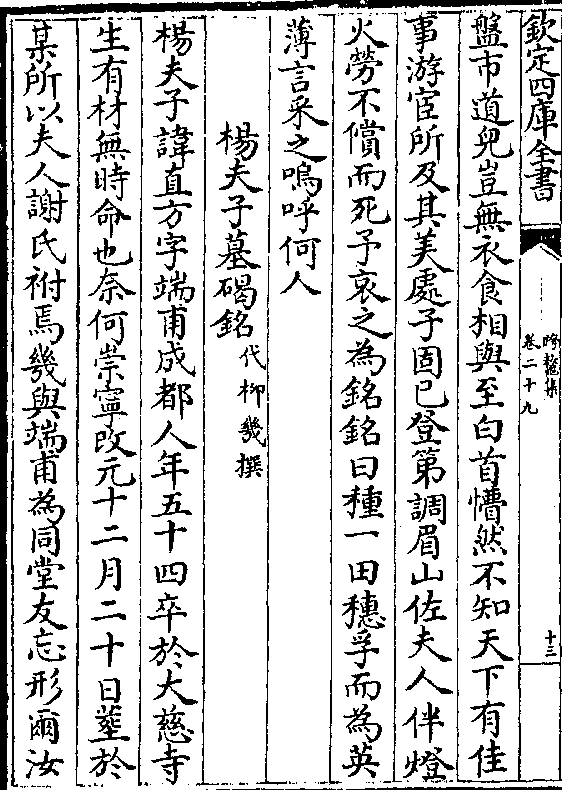 欽定四庫全書
跨鼇集
卷二十九
十三
盤市道兒豈無衣食相與至白首懵然不知天下有佳
事游宦所及其美處子固已登第調眉山佐夫人伴燈
火勞不償而死予哀之為銘銘曰種一田穗孚而為英
薄言采之嗚呼何人
楊夫子墓碣銘代柳幾撰
楊夫子諱直方字端甫成都人年五十四卒於大慈寺
生有材無時命也奈何崇寧改元十二月二十日塟於
某所以夫人謝氏祔焉幾與端甫為同堂友忘形爾汝